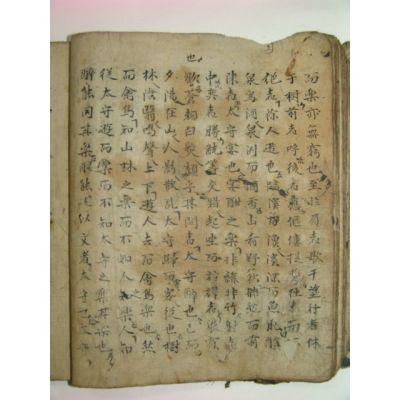 而樂亦無窮也至於負者歌于塗行者休
于樹前者呼後者應傴僂提携往來而不
絶者滁人遊也臨溪而漁溪深而魚肥釀
泉爲酒泉洌而酒香山肴野蔌雜然而前
陳者太守宴也宴酣之樂非絲非竹射者
中奕者勝觥籌交錯起坐而諠譁者衆賓
也
歡蒼顔白髮頹乎其間者太守醉也已而
夕陽在山人影散亂太守歸而賓客從也樹
林陰翳鳴聲上下遊人去而禽鳥樂也然
而禽鳥知山林之樂而不知人之樂人知
從太守遊而樂而不知太守之樂其樂也
醉能同其樂醒能述以文者太守也太守